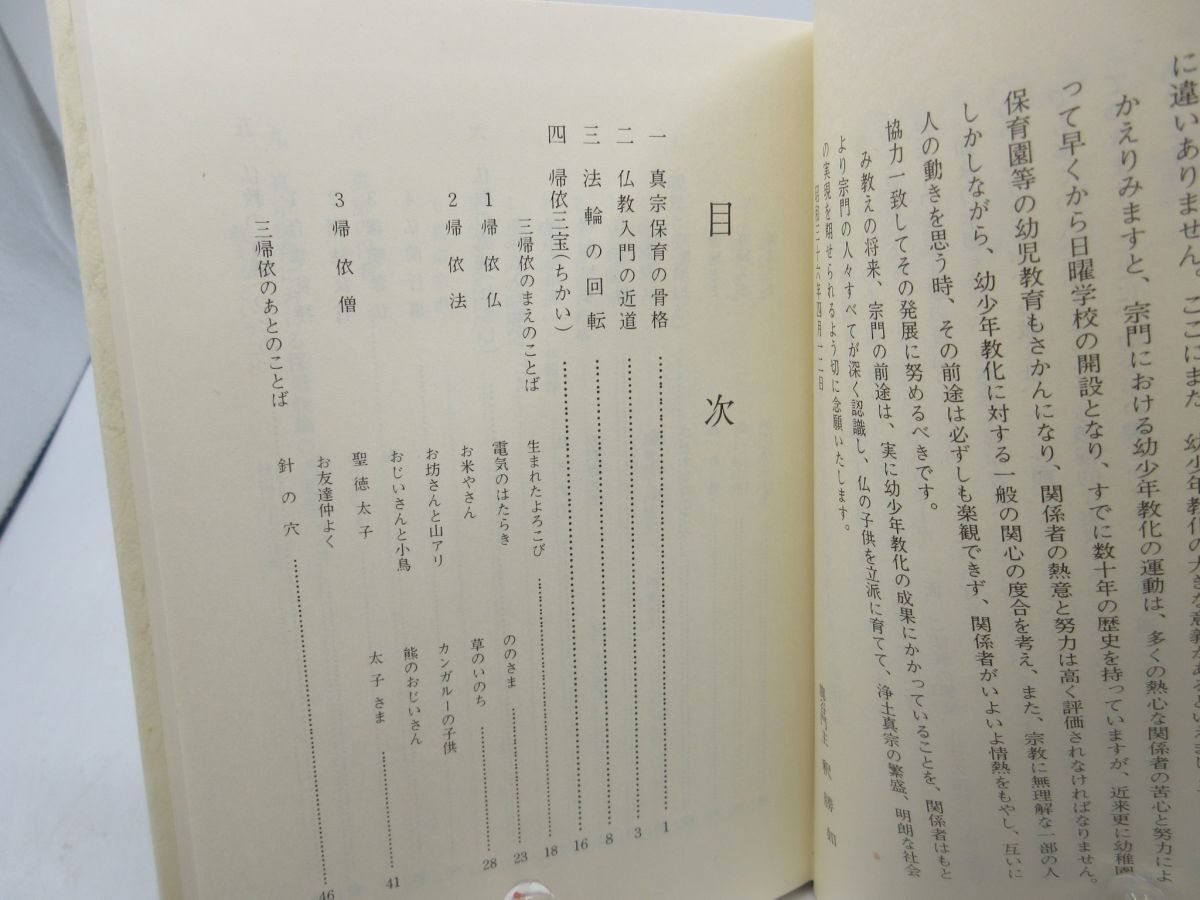 に違いありません。ここにまた、幼少年教化の大きな意義があるといえましょ
かえりみますと、宗門における幼少年教化の運動は、多くの熱心な関係者の苦心と努力によ
って早くから日曜学校の開設となり、すでに数十年の歴史を持っていますが、近来更に幼稚園
保育園等の幼児教育もさかんになり、関係者の熱意と努力は高く評価されなければなりません。
しかしながら、幼少年教化に対する一般の関心の度合を考え、また、宗教に無理解な一部の人
人の動きを思う時、その前途は必ずしも楽観できず、関係者がいよいよ情熱をもやし、互いに
協力一致してその発展に努めるべきです。
み教えの将来、宗門の前途は、実に幼少年教化の成果にかかっていることを、関係者はもと
より宗門の人々すべてが深く認識し、仏の子供を立派に育てて、浄土真宗の繁盛、明朗な社会
の実現を期せられるよう切に念願いたします。
昭和三十六年四月一二日
目次
一 真宗保育の骨格 1
二 仏教入門の近道 3
三 法輪の回転 8
四 帰依三宝(ちかい) 16
三帰依のまえのことば 生まれたよろこび 18
1 帰依仏 電気のはたらき ののさま 23
お米やさん 草のいのち 28
2 帰依法 お坊さんと山アリ カンガルーの子供
おじいさんと小鳥 熊のおじいさん
3 帰依僧 聖徳太子 太子さま 41
お友達仲よく
三帰依のあとのことば 針の穴 46